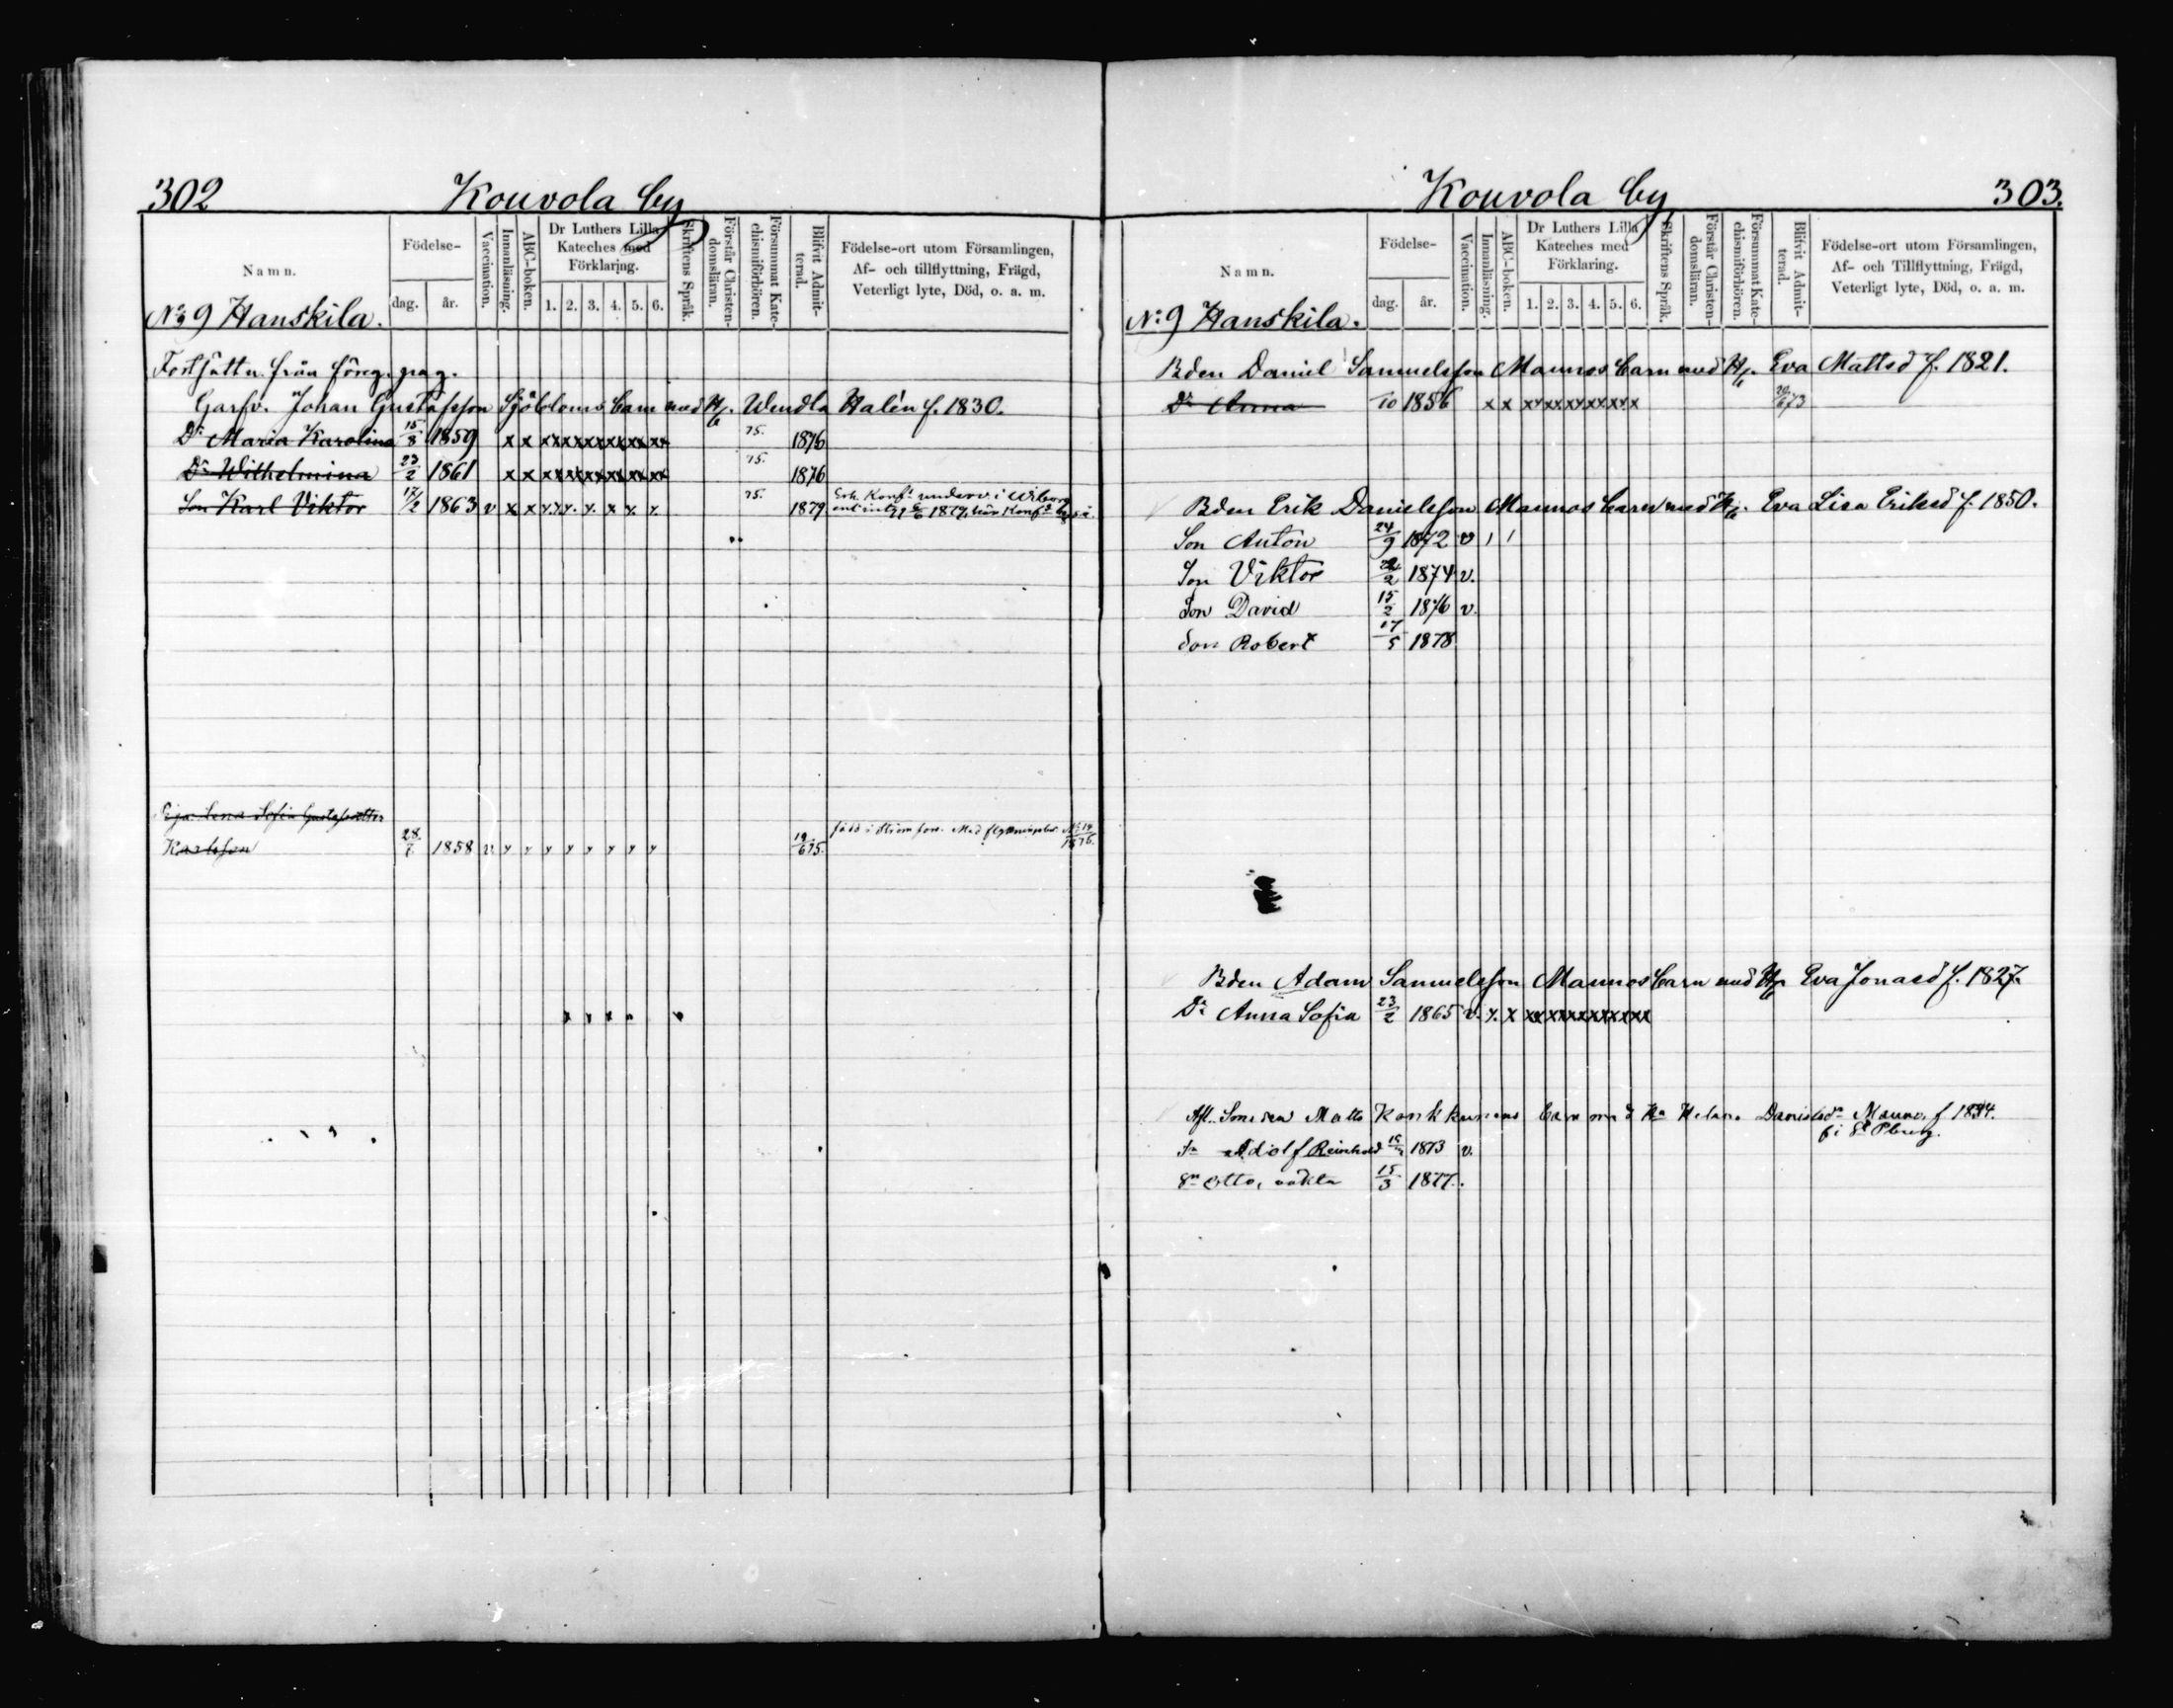 302
Kouvola by
Namn.
Födelse-
dag.
år.
Vaccination.
Innanläsning.
ABC-boken.
Dr Luthers Lilla
Kateches med
Förklaring.
1. 2. 3. 4. 5. 6.
Skriftens Språk.
Förstår Christen-
domsläran.
Försummat Kate-
chismiförhören.
Blifvit Admit-
terad.
Födelse-ort utom Församlingen,
Af- och tillflyttning, Frägd,
Veterligt lyte, Död, o. a. m.
No 9 Hanskila.
Fortsättn. från föreg. pag.
Garfv. Johan Gustafsson Sjöbloms barn med H. Wendla Halén f. 1830.
Dr Maria Karolina 15/8 1859 x x xx xx xx xx xx xx 75. 1876
Dr Wilhelmina 23/2 1861 x x xx xx xx xx xx xx 75. 1876
Son Karl Viktor 17/2 1863 v x x 75. 1879 Erh. Konf. underv. i Wiborg
1879, här Konf.
Lena Sofia Gustafsdotter
Karlsson 28/7. 1858 v. 19/6 75. född i Strömfors. Med flyttningsbet. No 19/1876.
Kouvola by
303.
Namn.
Födelse-
dag.
år.
Vaccination.
Innanläsning.
ABC-boken.
Dr Luthers Lilla
Kateches med
Förklaring.
1. 2. 3. 4. 5. 6.
Skriftens Språk.
Förstår Christen-
domsläran.
Försummat Kate-
chismiförhören.
Blifvit Admit-
terad.
Födelse-ort utom Församlingen,
Af- och Tillflyttning, Frägd,
Veterligt lyte, Död, o. a. m.
No 9 Hanskila.
Bden Daniel Samuelsson Maunos barn med H. Eva Mattsd f. 1821.
Dr Anna /10 1856 x x xx xx xx xx xx x 673
Bden Erik Danielsson Maunos barn med H. Eva Lisa Eriksd f. 1850.
Son Anton 24/9 1872 v
Son Viktor 22/2 1874 v.
Son David 15/2 1876 v.
Son Robert 17/5 1878
Bden Adam Samuelsson Maunos barn med H. Eva Jonasd f. 1827.
Dr Anna Sofia 23/2 1865 v. x. x xx xx xx xx xx xx
Afl. Sonen Matts Konkkunens barn med Ha Helena Danielsdr Mauno, f 1834.
f i St Pburg.
Sn Adolf Reinhold 1873 v.
Sn Otto, oäkta 15/3 1877.